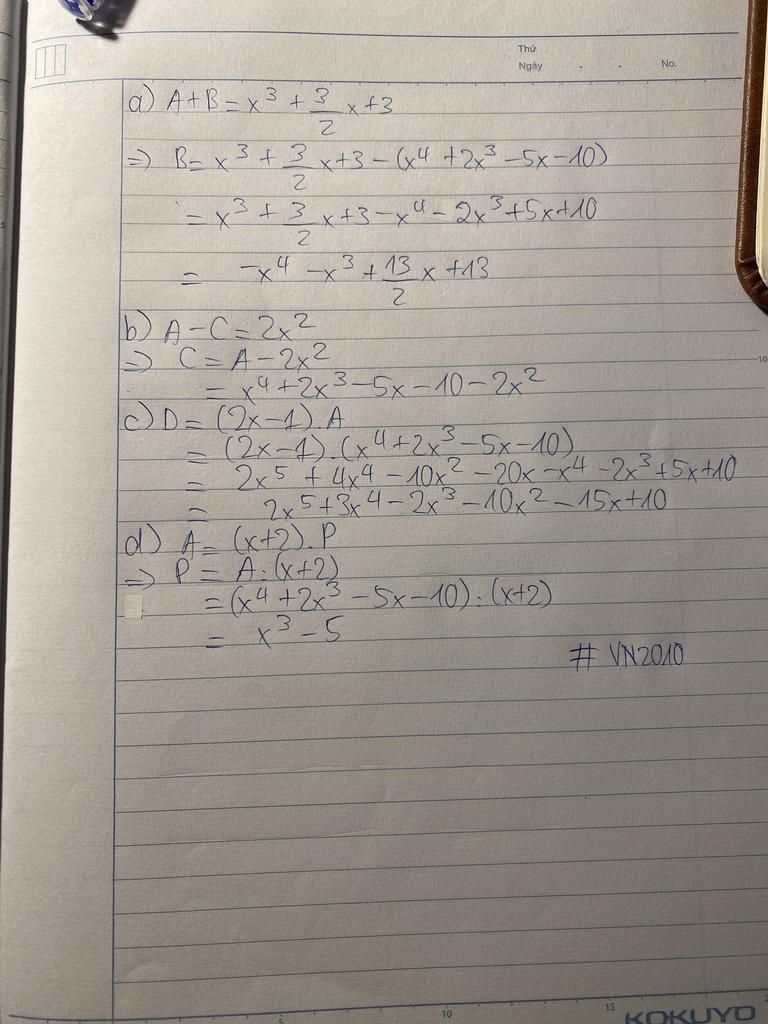 Thứ
Ngày . . No.
a) A+B = x³ + 3/2 x+3
=> B= x³ + 3/2 x+3 - (x⁴ +2x³ -5x-10)
= x³ + 3/2 x+3-x⁴-2x³+5x+10
= -x⁴ -x³ + 13/2 x +13
b) A-C=2x²
=> C=A-2x²
= x⁴+2x³-5x-10-2x²
c) D= (2x-1).A
= (2x-1).(x⁴+2x³-5x-10)
= 2x⁵ + 4x⁴ -10x² -20x -x⁴ -2x³+5x+10
= 2x⁵+3x⁴-2x³-10x²-15x+10
d) A= (x+2).P
=> P = A:(x+2)
=(x⁴+2x³-5x-10):(x+2)
= x³-5
# VN2010
5
10
5
10
15
KOKUYO